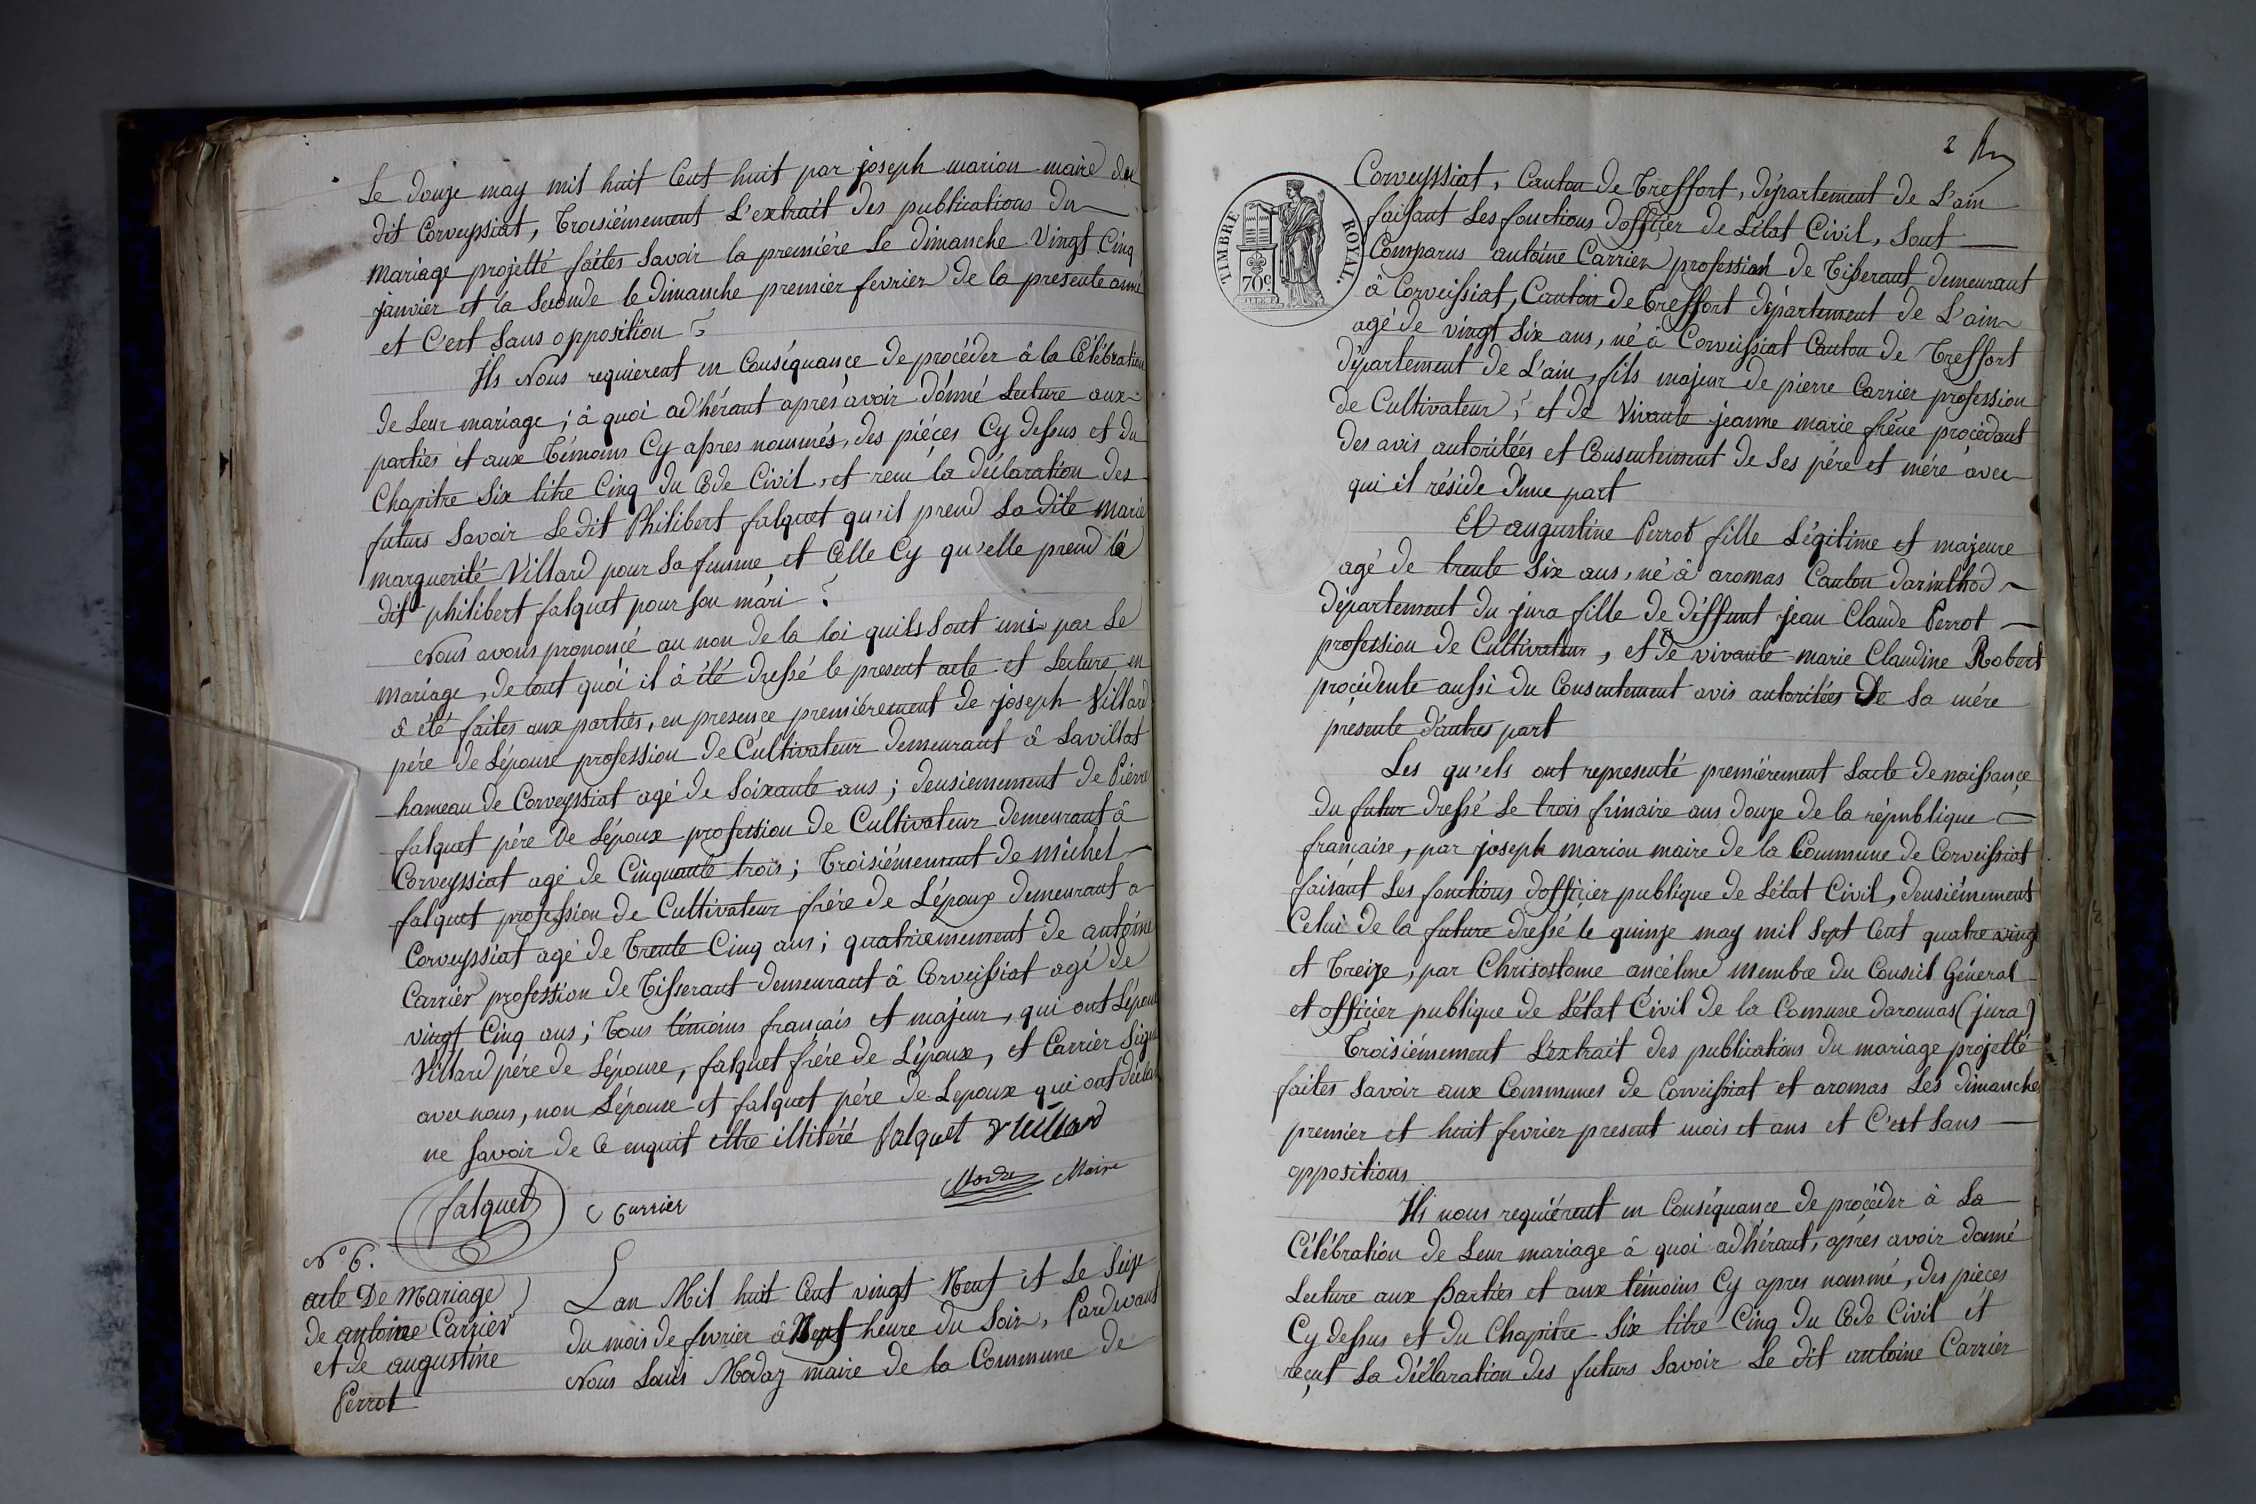 Le douze may mil huit Cent huit par joseph marion maire du
dit Corveyssiat, Troisiémement L'extrait des publications du
Mariage projetté faites Savoir la premiére Le dimanche Vingt Cinq
janvier et la Seconde le dimanche premier fevrier de la presente anné
et C'est Sans opposition
Ils Nous requierent en Conséquance de procéder â la Célébration
de Leur mariage; â quoi ad'hérant aprés avoir donné Lecture aux
parties et aux Témoins Cy apres nommés, des piéces Cy dessus et du
Chapitre Six titre Cinq du Code Civil, et recu la déclaration des
futurs Savoir Le dit Philibert falquet qu'il prend La dite Marie
marguerite Villard pour Sa femme et Celle Cy qu'elle prend le
dit philibert falquet pour Son mari
Nous avons prononcé au non de la loi quils Sont uni par Le
Mariage, de tout quoi il â été dressé le present acte et Lecture en
â été faites aux parties, en presence premiérement de joseph Villard
pére de Lépouse profession de Cultivateur demeurant â Lavillat
hameau de Corveyssiat agé de Soixante ans; deusiemement de Piérre
falquet pére De Lépoux profession de Cultivateur demeurant â
Corveyssiat agé de Cinquante trois; Troisiémement de Michel
falquet profession de Cultivateur frére de L'époux demeurant a
Corveyssiat agé de Trente Cinq ans; quatriemement de antoine
Carrier profession de Tisserant demeurant â Corveissiat agé de
vingt Cinq ans; Tous témoins francais et majeur, qui ont Lépoux
Villard pére de Lépouse, falquet frére de L'époux, et Carrier Signé
avec nous, non Lépouse et falquet pére de Lepoux qui ont déclaré
ne Savoir de Ce enquit Etre illitéré falquet Villard
falquet Carrier Moday Maire
N° 6.
acte De Mariage
de antoine Carrier
et de augustine
Perrot
Lan Mil huit Cent vingt Neuf et Le Seize
du mois de fevrier â Sept heure du Soir, Pardevant
Nous Louis Moday maire de la Commune de
2
TIMBRE ROYAL.
70c
Corveyssiat, Canton de Treffort, département de L'ain
faisant Les fonctions d'officier de Létat Civil, Sont
Comparus antoine Carrier profession de Tisserant demeurant
â Corveissiat, Canton de Treffort département de L'ain
agé de vingt Six ans, né â Corveissiat Canton de Treffort
département de L'ain, fils majeur de pierre Carrier profession
de Cultivateur, et de Vivante jeanne marie fréne procédant
des avis autoritées et Consentement de Ses pére et mére avec
qui il réside D'une part
Et augustine Perrot fille Légitime et majeure
agé de trente Six ans, né â aromas Canton darinthod
département du jura fille de déffunt jean Claude Perrot
profession de Cultivateur, et de vivante marie Claudine Robert
procédente aussi du Consentement avis autoritées De Sa mére
présente d'autres part
Les qu'els ont representé premiérement Lacte de naissance
du futur dressé Le trois frimaire ans douze de la république
française, par joseph marion maire de la Commune de Corveissiat
faisant Les fonctions d'officier publique de Létat Civil, deusiémement
Celui de la future dressé le quinze may mil Sept Cent quatre vingt
et Treize, par Chrisostome ancélme Membre du Conseil Général
et officier publique de Létat Civil de la Comune daromas (jura)
Troisiémement L'extrait des publications du mariage projetté
faites Savoir aux Communes de Corveissiat et aromas Les dimanche
premier et huit fevrier present mois et ans et C'est Sans
oppositions
Ils nous requiérent en Conséquance de procéder â La
Célébration de Leur mariage â quoi ad'hérant, aprés avoir donné
Lecture aux Parties et aux témoins Cy apres nommé, des piéces
Cy dessus et du Chapitre Six titre Cinq du Code Civil et
reçut La déclaration des futurs Savoir Le dit antoine Carrier